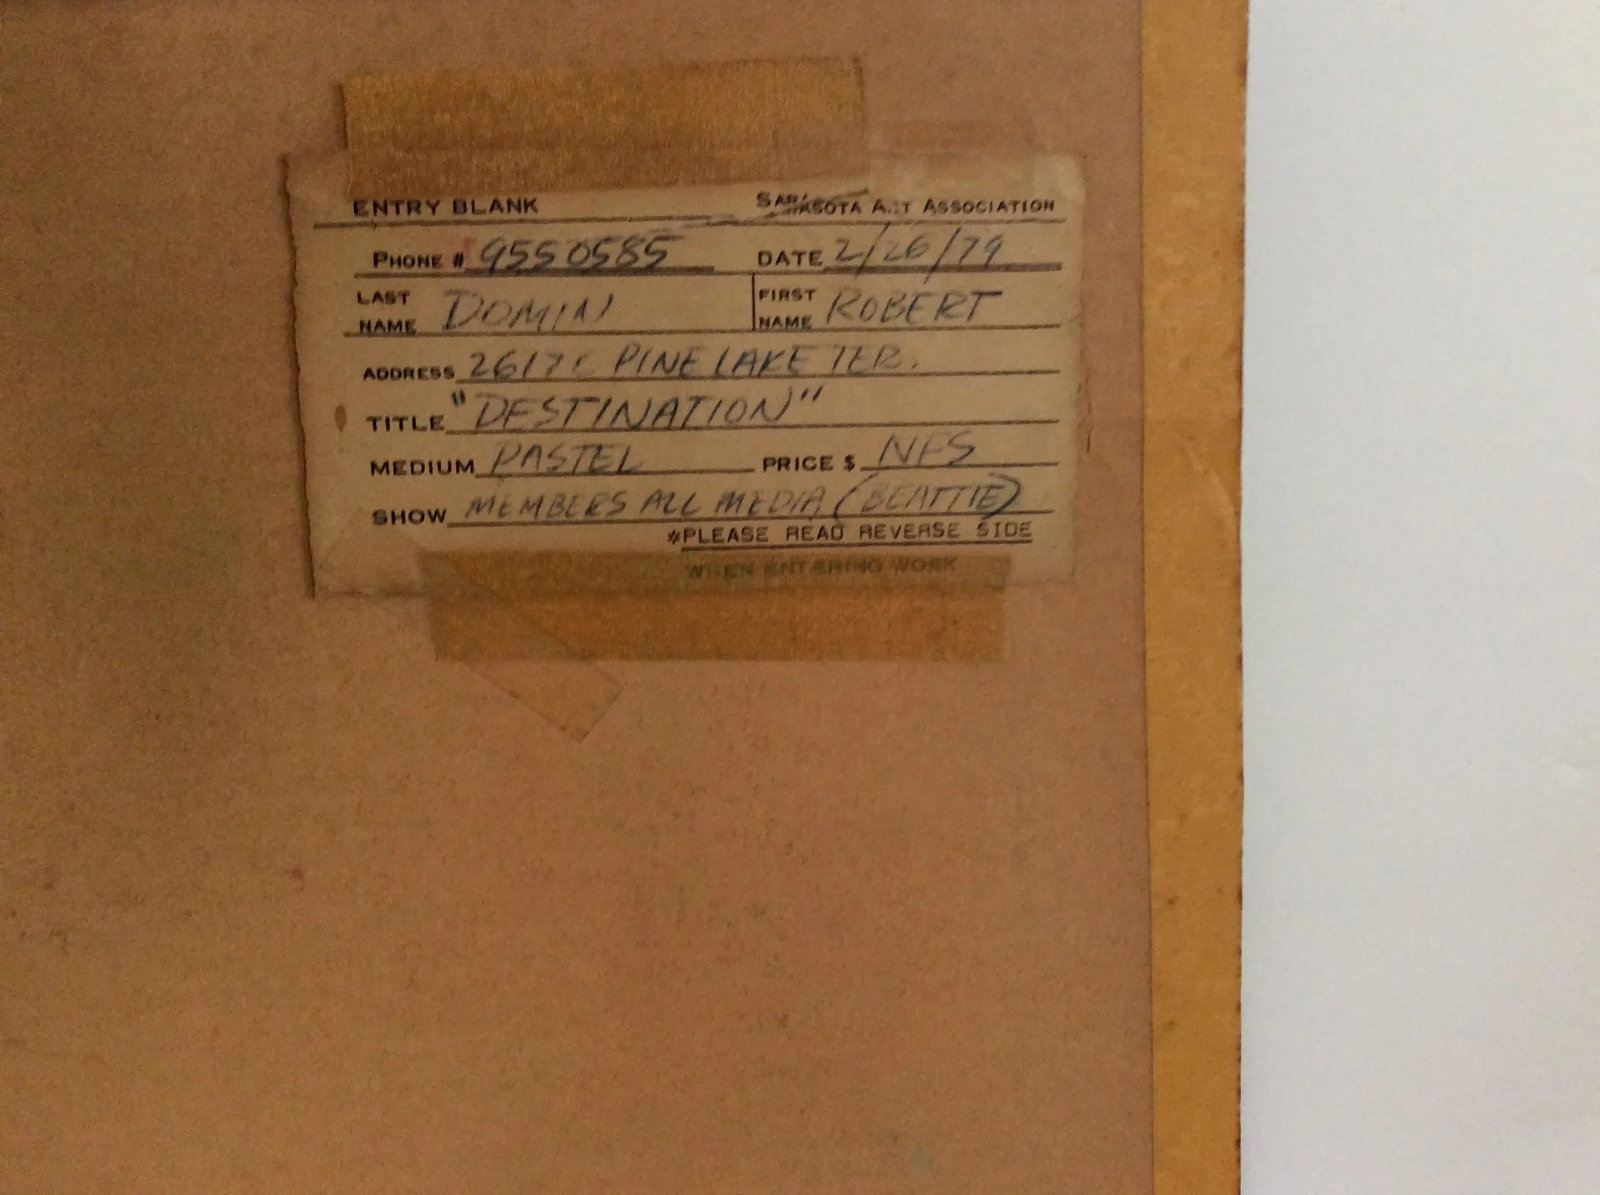 ENTRY BLANK SARASOTA ART ASSOCIATION
PHONE # 9550585 DATE 2/26/79
LAST NAME DOMIN FIRST NAME ROBERT
ADDRESS 2617C PINE LAKE TER.
TITLE "DESTINATION"
MEDIUM PASTEL PRICE $ NFS
SHOW MEMBERS ALL MEDIA (BEATTIE)
*PLEASE READ REVERSE SIDE
WHEN ENTERING WORK